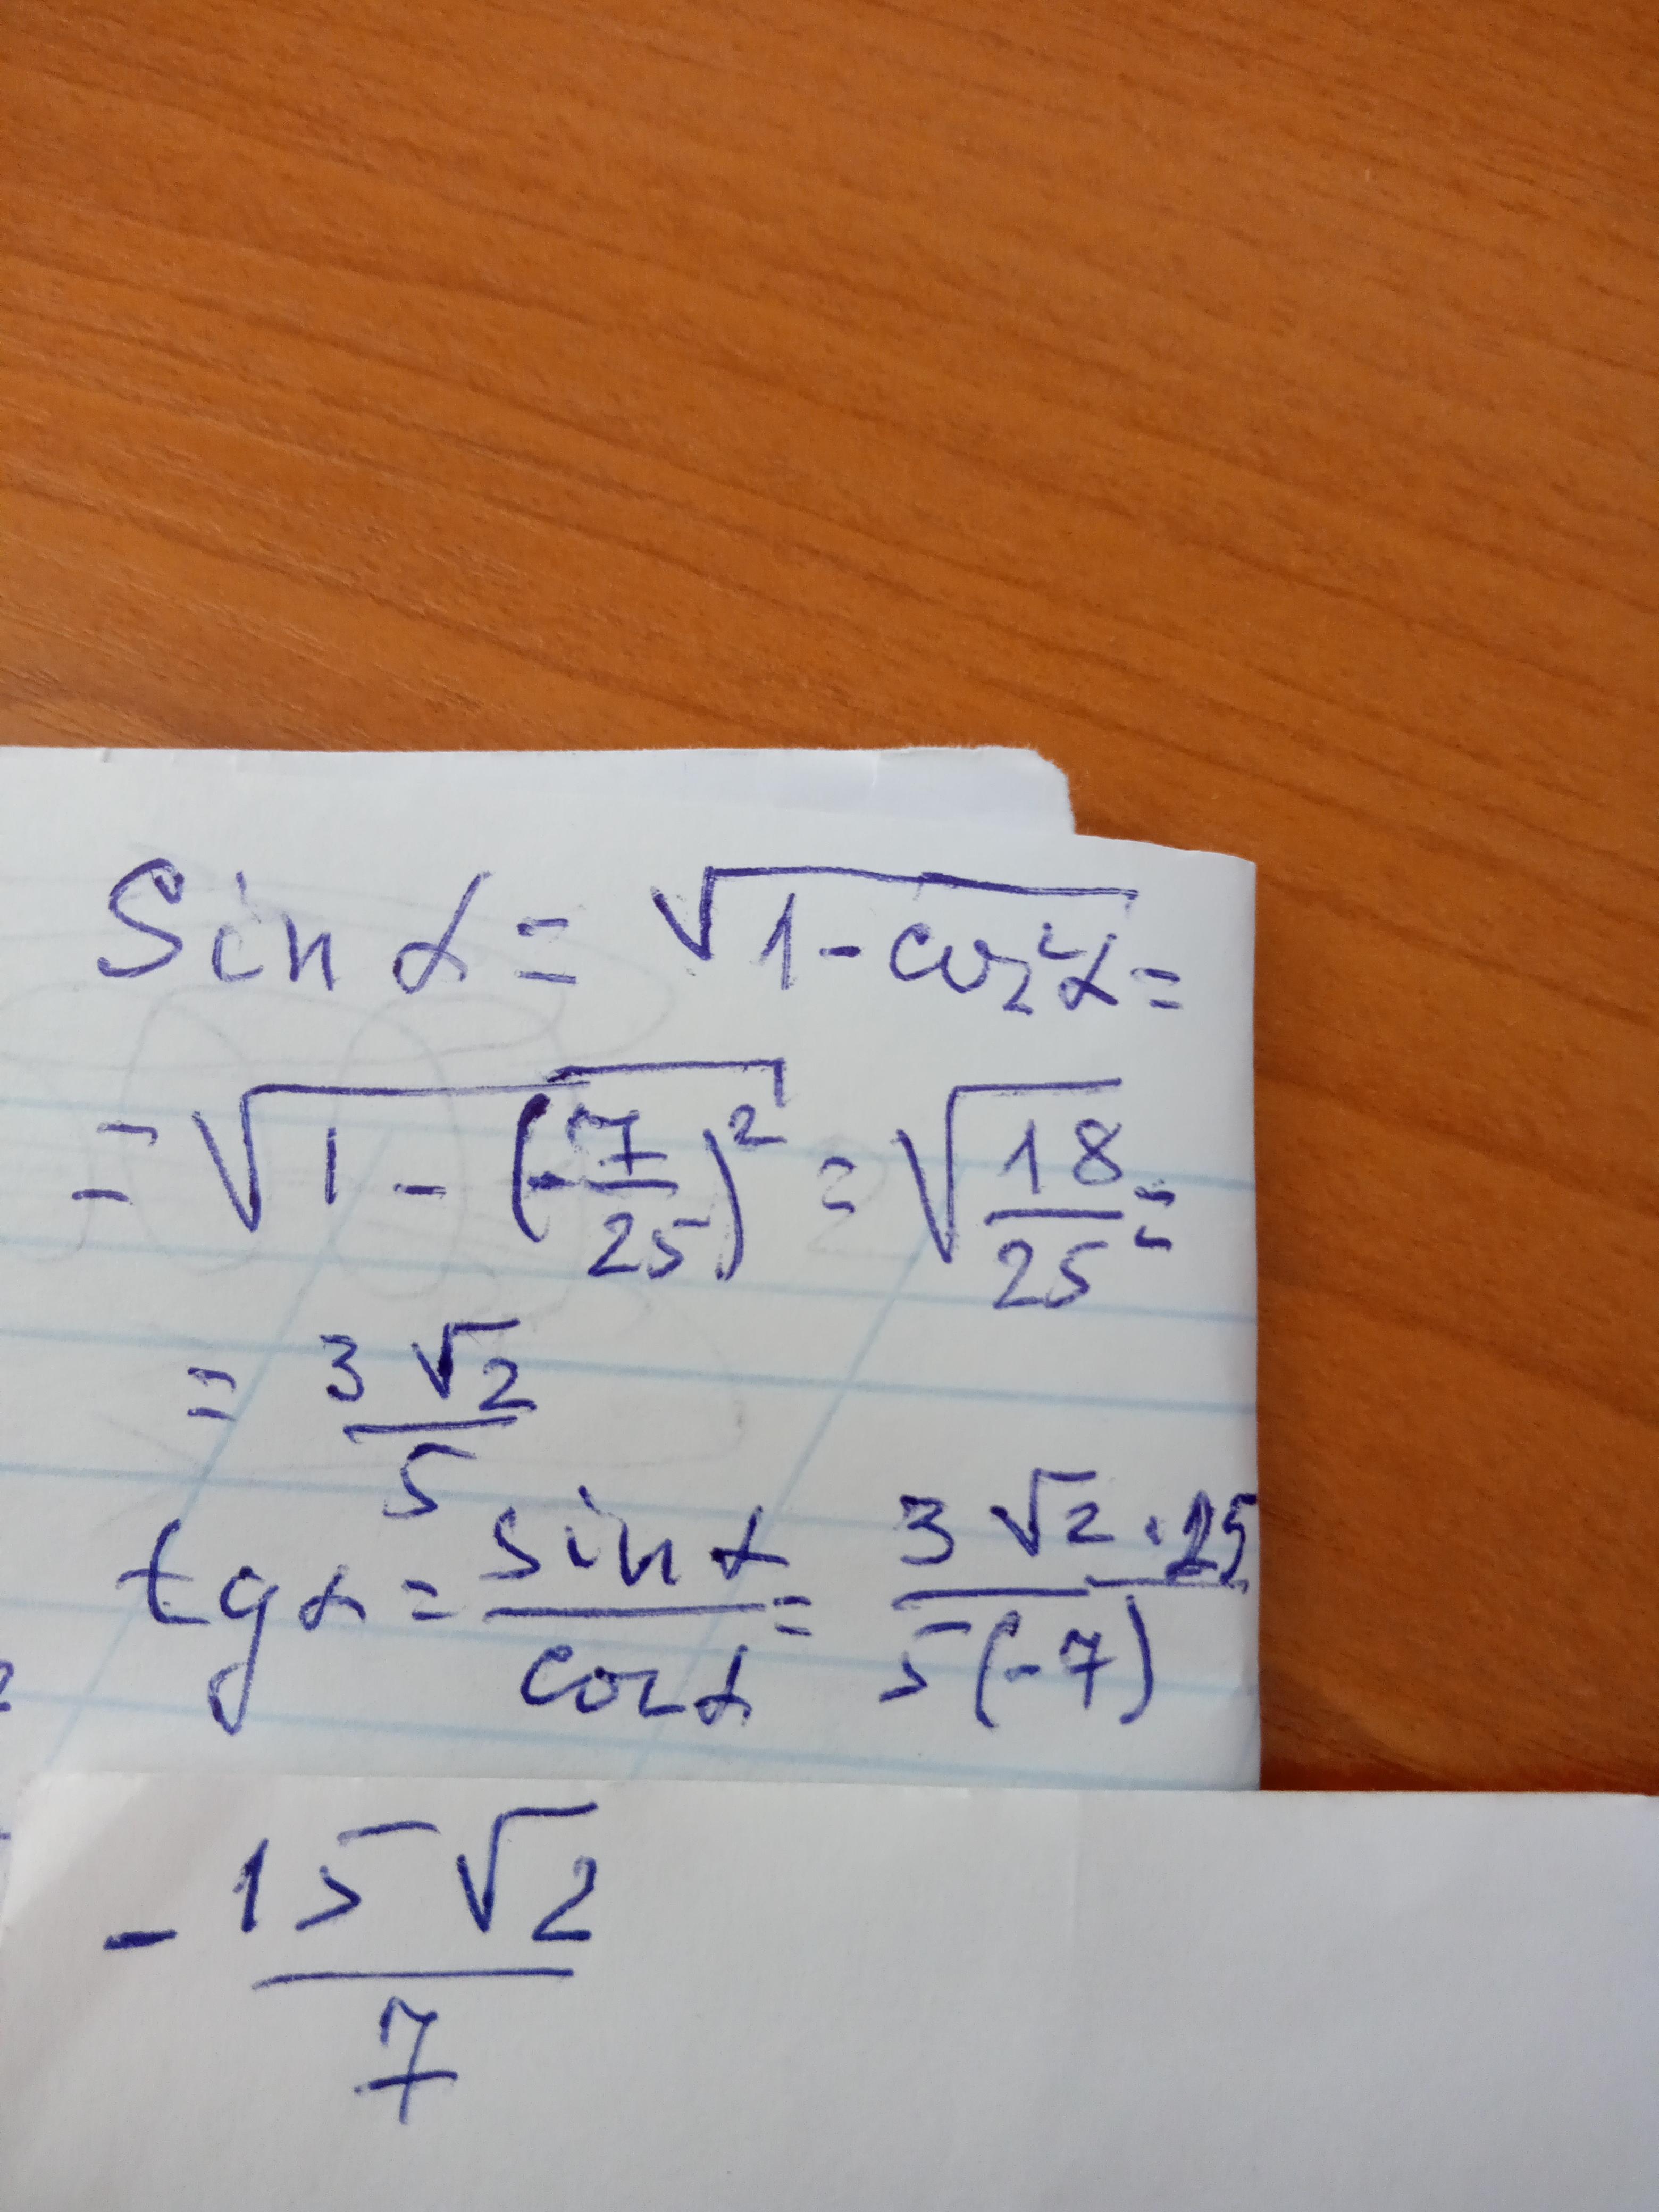 sin α = √(1 - cos²α) =
= √(1 - (-7/25)²) = √(18/25) =
= 3√2/5
tg α = sin α/cos α = 3√2 · 25/5(-7)
- 15√2/7